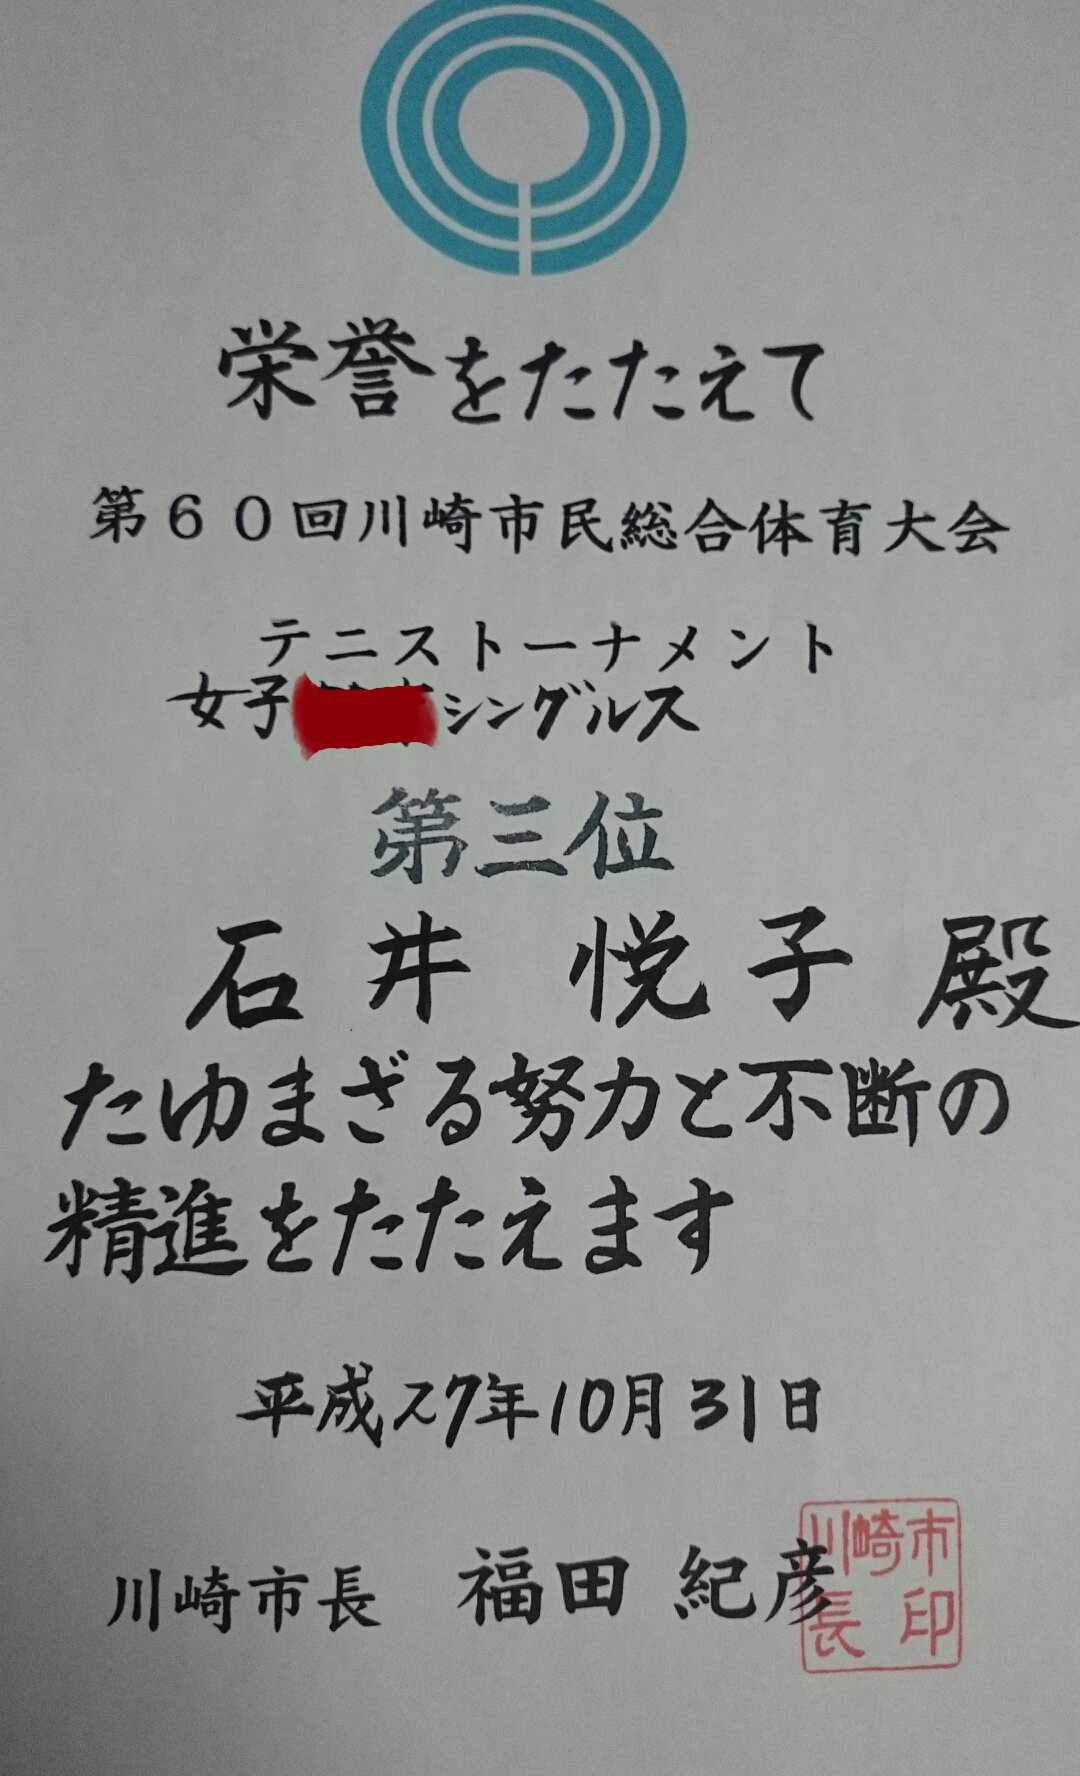 栄誉をたたえて
第60回川崎市民総合体育大会
テニストーナメント
女子 シングルス
第三位
石井 悦子 殿
たゆまざる努力と不断の
精進をたたえます
平成27年10月31日
川崎市長 福田 紀彦
川崎市
長印